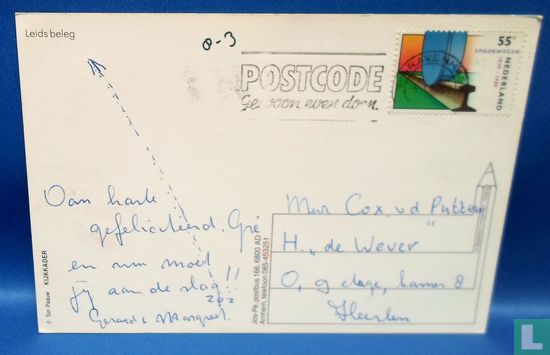 Leids beleg
0-3
POSTCODE
Gewoon even doen.
55c
SPOORWEGEN
1839-1989
NEDERLAND
'S-GRAVENHAGE
Van harte
gefeliciteerd, Gré
en nu moet
jij aan de slag!!
Gerard & Margreet
© Ton Pauw KIJKKADER
Jos-Pé, postbus 166, 6800 AD
Arnhem, telefoon 085-453251
Mevr Cox. v.d Putten
H. "de Wever"
0, 9 etage, kamer 8
Heerlen